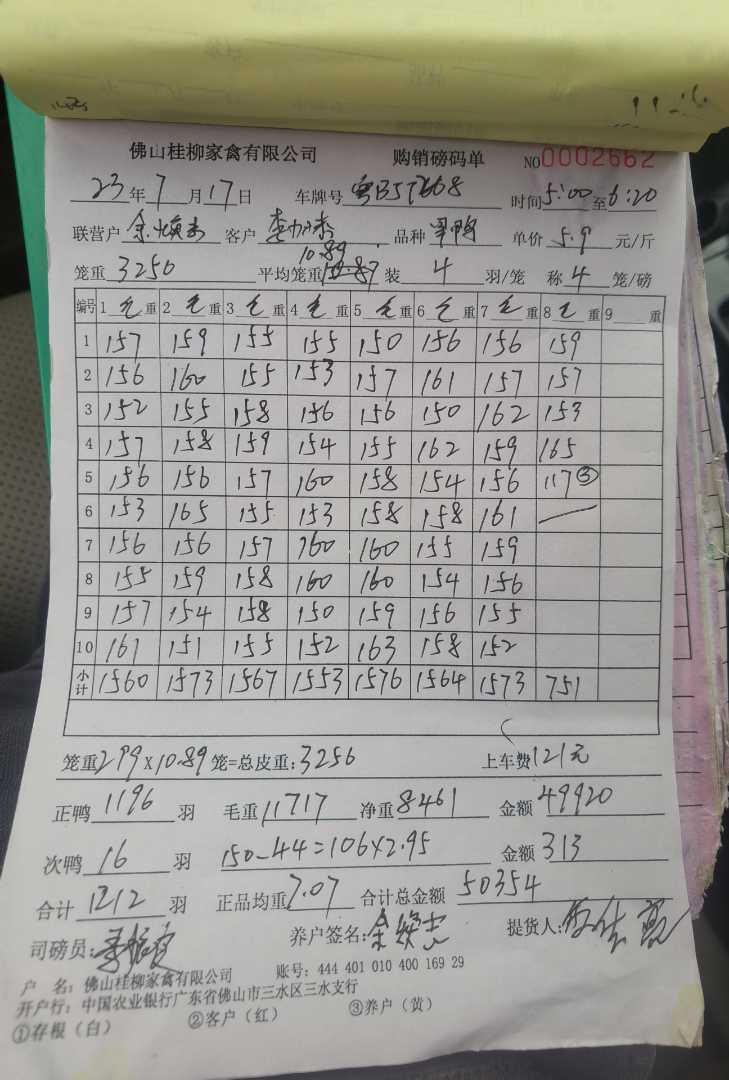 佛山桂柳家禽有限公司 购销磅码单 NO0002662
23年7月17日 车牌号 时间5:00至6:20
联营户 客户 品种 单价5.9元/斤
10.89
笼重3250 平均笼重 装4羽/笼 称4笼/磅
编号 1毛重 2毛重 3毛重 4毛重 5毛重 6毛重 7毛重 8毛重 9重
1 157 159 155 155 150 156 156 159
2 156 160 155 153 157 161 157 157
3 152 155 158 156 156 150 162 153
4 157 158 159 154 155 162 159 165
5 156 156 157 160 158 154 156 117③
6 153 165 155 153 158 158 161
7 156 156 157 160 160 155 159
8 155 159 158 160 160 154 156
9 157 154 158 150 159 156 155
10 161 151 155 152 163 158 152
小计 1560 1573 1567 1553 1576 1564 1573 751
笼重299×10.89笼=总皮重:3256 上车费121元
正鸭1196羽 毛重11717 净重8461 金额49920
次鸭16羽 150-44=106×2.95 金额313
合计1212羽 正品均重7.07 合计总金额50354
司磅员: 养户签名: 提货人:
户 名:佛山桂柳家禽有限公司 账号:444 401 010 400 169 29
开户行:中国农业银行广东省佛山市三水区三水支行
①存根（白） ②客户（红） ③养户（黄）